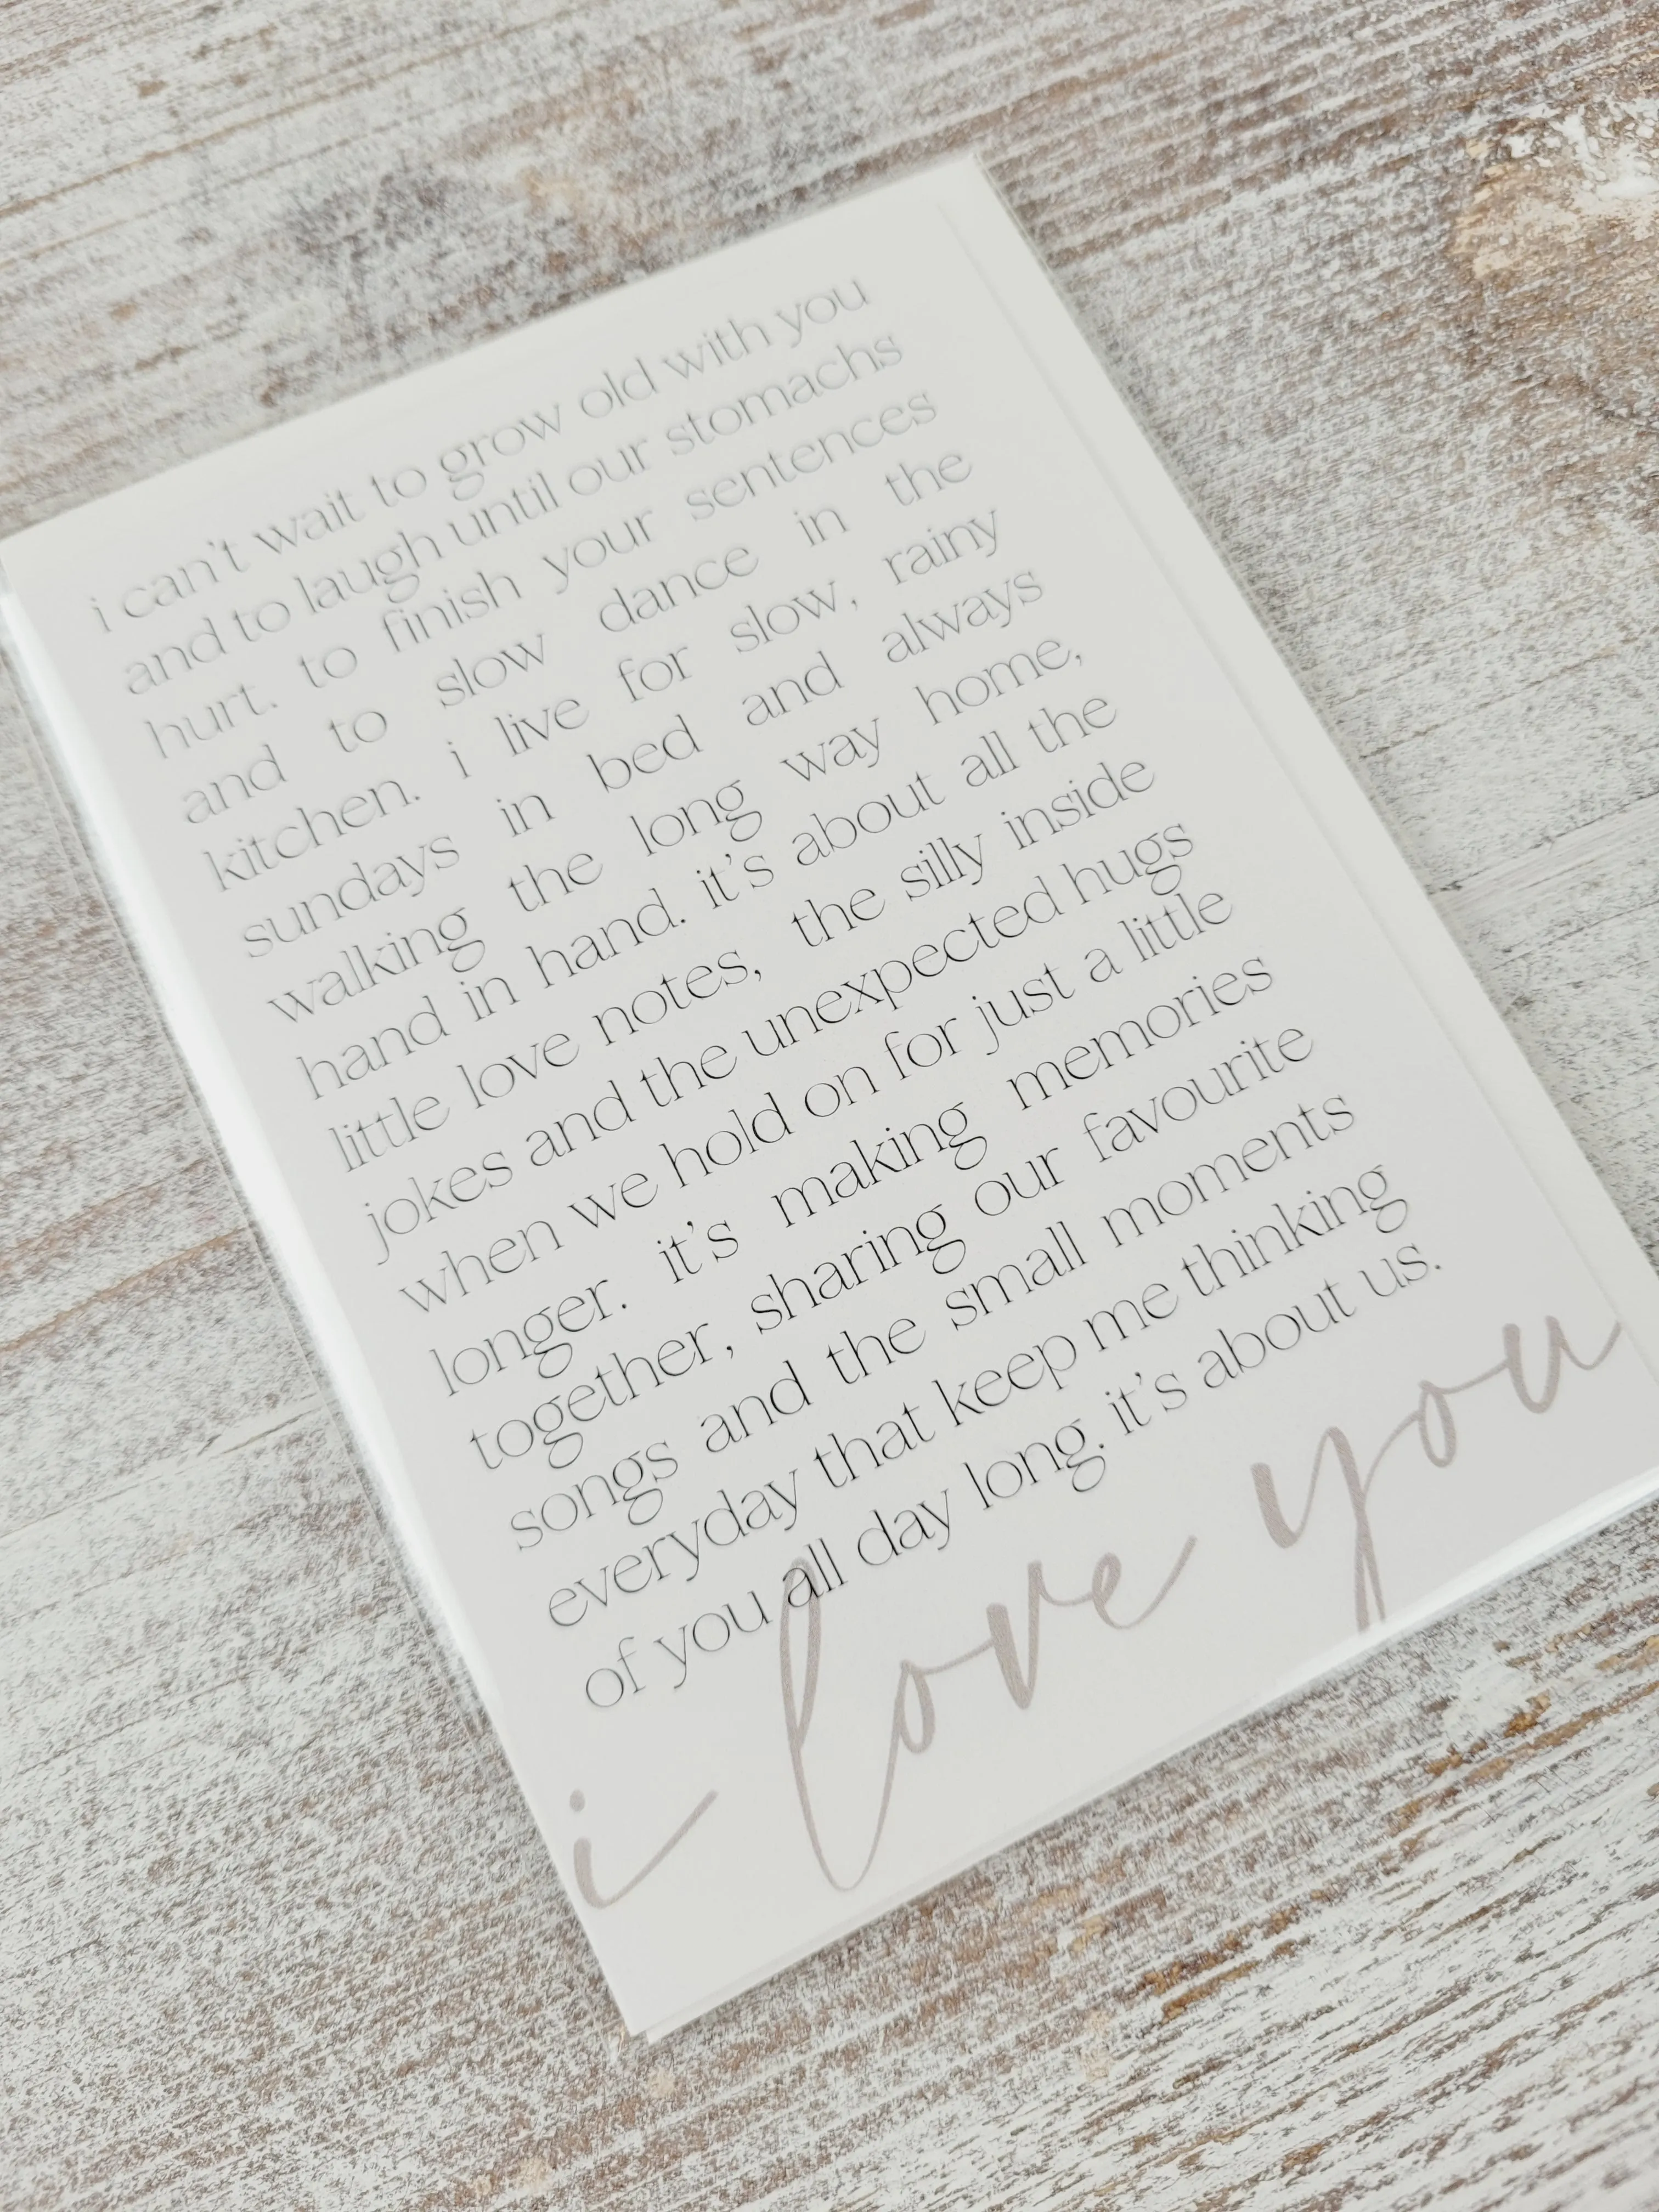 i can't wait to grow old with you
and to laugh until our stomachs
hurt. to finish your sentences
and to slow dance in the
kitchen. i live for slow, rainy
sundays in bed and always
walking the long way home,
hand in hand. it's about all the
little love notes, the silly inside
jokes and the unexpected hugs
when we hold on for just a little
longer. it's making memories
together, sharing our favourite
songs and the small moments
everyday that keep me thinking
of you all day long. it's about us.
i love you